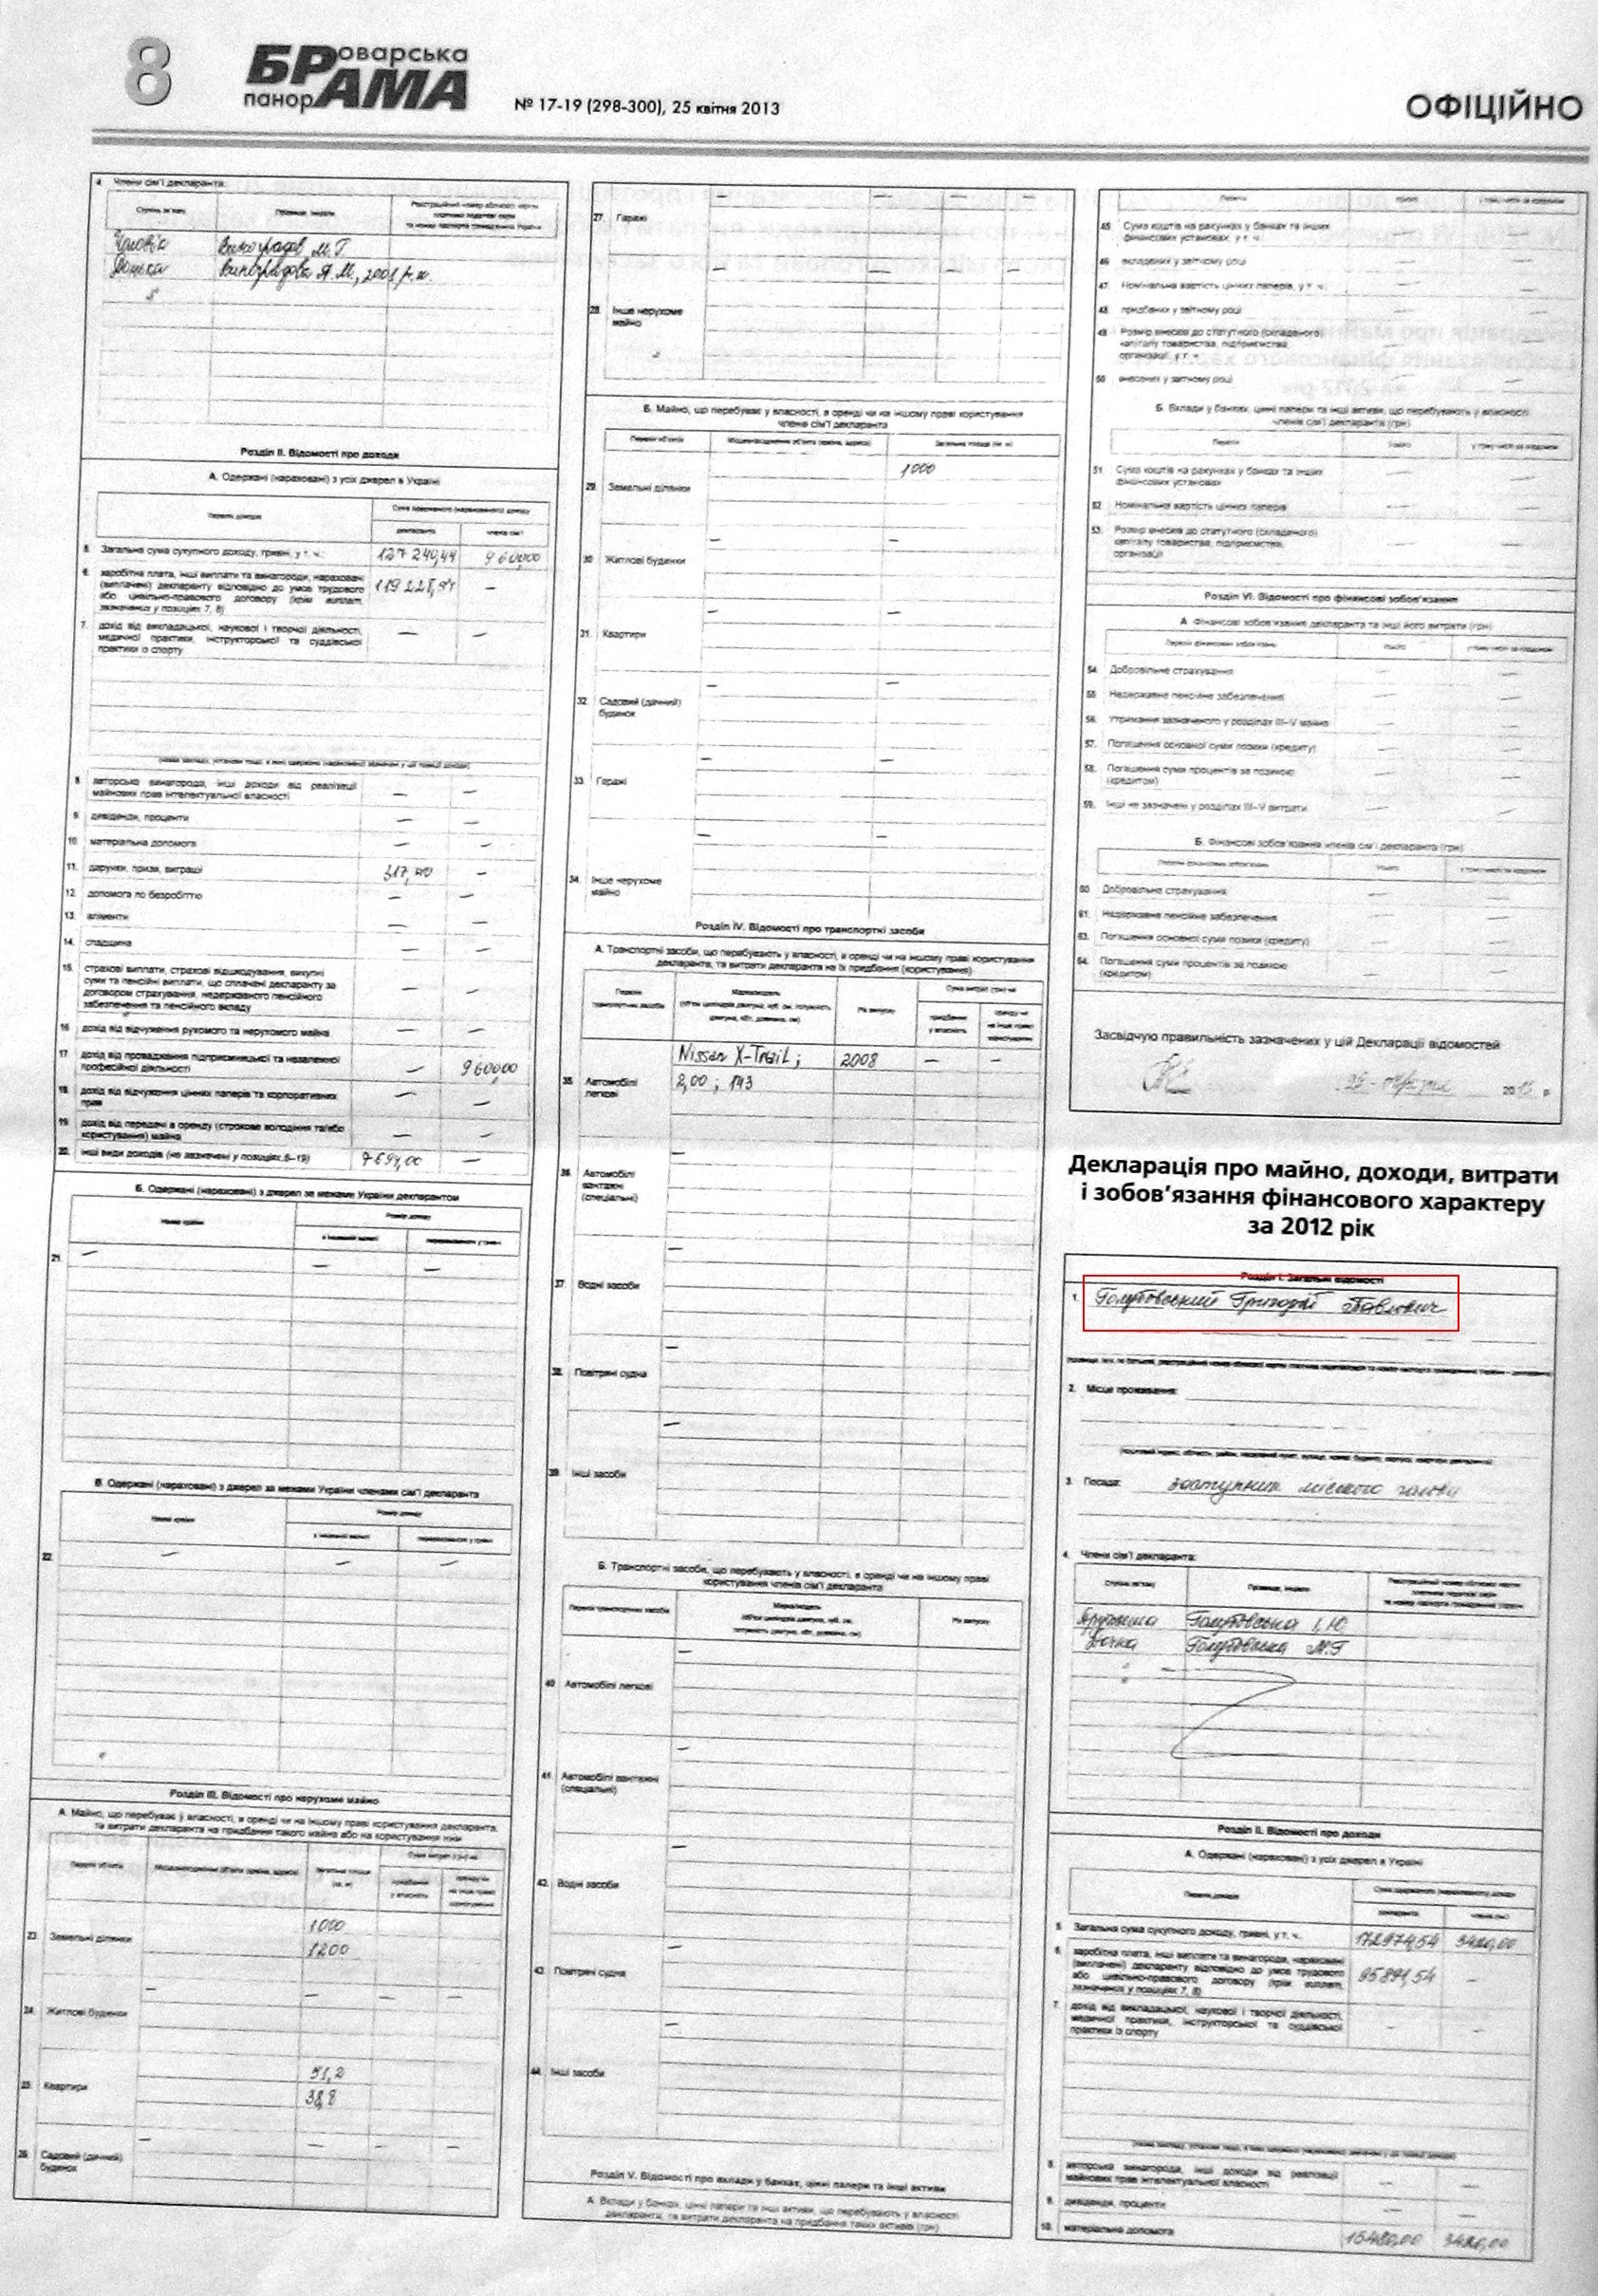 8
БРоварська
панорАМА
№ 17-19 (298-300), 25 квітня 2013
ОФІЦІЙНО
4. Члени сім'ї декларанта:
Чоловік Виноградов М.Г.
Донька Виноградова Я.М., 2001 р.н.
Розділ II. Відомості про доходи
А. Одержані (нараховані) з усіх джерел в Україні
5. Загальна сума сукупного доходу, гривні, у т. ч.: 9 600,00
6. заробітна плата, інші виплати та винагороди, нараховані
(виплачені) декларанту відповідно до умов трудового
або цивільно-правового договору (крім виплат,
зазначених у позиціях 7, 8)
7. дохід від викладацької, наукової і творчої діяльності,
медичної практики, інструкторської та суддівської
практики із спорту
8. авторська винагорода, інші доходи від реалізації
майнових прав інтелектуальної власності
9. дивіденди, проценти
10. матеріальна допомога
11. дарунки, призи, виграші
12. допомога по безробіттю
13. аліменти
14. спадщина
15. страхові виплати, страхові відшкодування, викупні
суми та пенсійні виплати, що сплачені декларанту за
договором страхування, недержавного пенсійного
забезпечення та пенсійного вкладу
16. дохід від відчуження рухомого та нерухомого майна
17. дохід від провадження підприємницької та незалежної
професійної діяльності 9 600,00
18. дохід від відчуження цінних паперів та корпоративних
прав
19. дохід від передачі в оренду (строкове володіння та/або
користування) майна
20. інші види доходів (не зазначені у позиціях 6–19)
Б. Одержані (нараховані) з джерел за межами України декларантом
21.
В. Одержані (нараховані) з джерел за межами України членами сім'ї декларанта
22.
Розділ III. Відомості про нерухоме майно
А. Майно, що перебуває у власності, в оренді чи на іншому праві користування декларанта,
та витрати декларанта на придбання такого майна або на користування ним
23. Земельні ділянки 1000
1200
24. Житлові будинки
25. Квартири 51,2
38,8
26. Садовий (дачний)
будинок
27. Гаражі
28. Інше нерухоме
майно
Б. Майно, що перебуває у власності, в оренді чи на іншому праві користування
членів сім'ї декларанта
Перелік об'єктів Місцезнаходження об'єкта (країна, адреса) Загальна площа (кв. м)
29. Земельні ділянки 1000
30. Житлові будинки
31. Квартири
32. Садовий (дачний)
будинок
33. Гаражі
34. Інше нерухоме
майно
Розділ IV. Відомості про транспортні засоби
А. Транспортні засоби, що перебувають у власності, в оренді чи на іншому праві користування
декларанта, та витрати декларанта на їх придбання (користування)
35. Автомобілі
легкові
Nissan X-Trail; 2008
2,00; 143
36. Автомобілі
вантажні
(спеціальні)
37. Водні засоби
38. Повітряні судна
39. Інші засоби
Б. Транспортні засоби, що перебувають у власності, в оренді чи на іншому праві
користування членів сім'ї декларанта
40. Автомобілі легкові
41. Автомобілі вантажні
(спеціальні)
42. Водні засоби
43. Повітряні судна
44. Інші засоби
Розділ V. Відомості про вклади у банках, цінні папери та інші активи
А. Вклади у банках, цінні папери та інші активи, що перебувають у власності
декларанта, та витрати декларанта на придбання таких активів (грн)
45. Сума коштів на рахунках у банках та інших
фінансових установах, у т. ч.:
46. вкладених у звітному році
47. Номінальна вартість цінних паперів, у т. ч.:
48. придбаних у звітному році
49. Розмір внесків до статутного (складеного)
капіталу товариства, підприємства,
організації, у т. ч.
50. внесених у звітному році
Б. Вклади у банках, цінні папери та інші активи, що перебувають у власності
членів сім'ї декларанта (грн)
51. Сума коштів на рахунках у банках та інших
фінансових установах
52. Номінальна вартість цінних паперів
53. Розмір внесків до статутного (складеного)
капіталу товариства, підприємства,
організації
Розділ VI. Відомості про фінансові зобов'язання
А. Фінансові зобов'язання декларанта та інші його витрати (грн)
54. Добровільне страхування
55. Недержавне пенсійне забезпечення
56. Утримання зазначеного у розділах III–V майна
57. Погашення основної суми позики (кредиту)
58. Погашення суми процентів за позикою
(кредитом)
59. Інші не зазначені у розділах III–V витрати
Б. Фінансові зобов'язання членів сім'ї декларанта (грн)
60. Добровільне страхування
61. Недержавне пенсійне забезпечення
63. Погашення основної суми позики (кредиту)
64. Погашення суми процентів за позикою
(кредитом)
Засвідчую правильність зазначених у цій Декларації відомостей
Декларація про майно, доходи, витрати
і зобов'язання фінансового характеру
за 2012 рік
Розділ I. Загальні відомості
1. Голубовський Григорій Павлович
2. Місце проживання:
3. Посада: заступник міського голови
4. Члени сім'ї декларанта:
Дружина Голубовська І.Ю.
Дочка Голубовська М.Г
Розділ II. Відомості про доходи
А. Одержані (нараховані) з усіх джерел в Україні
5. Загальна сума сукупного доходу, гривні, у т. ч.
6. заробітна плата, інші виплати та винагороди, нараховані
(виплачені) декларанту відповідно до умов трудового
або цивільно-правового договору (крім виплат,
зазначених у позиціях 7, 8)
7. дохід від викладацької, наукової і творчої діяльності,
медичної практики, інструкторської та суддівської
практики із спорту
8. авторська винагорода, інші доходи від реалізації
майнових прав інтелектуальної власності
9. дивіденди, проценти
10. матеріальна допомога